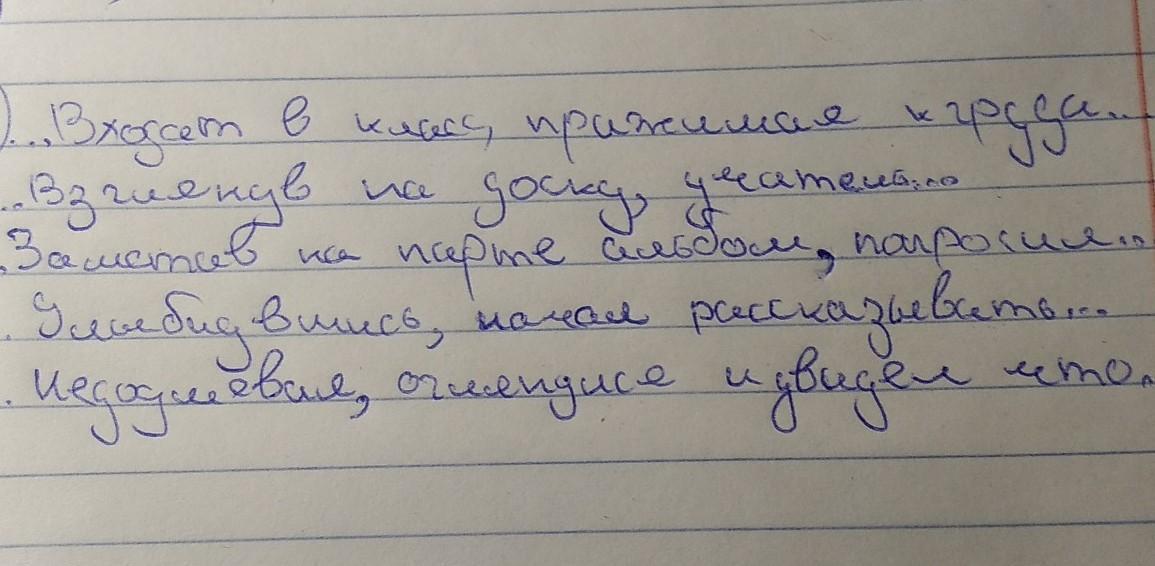 )...Входит в класс, прижимая к груди...
..Взглянув на доску, учитель...
.Заметив на парте альбом, попросил...
. Улыбнувшись, начал рассказывать...
. Недоумевая, оглянулся и увидел что..